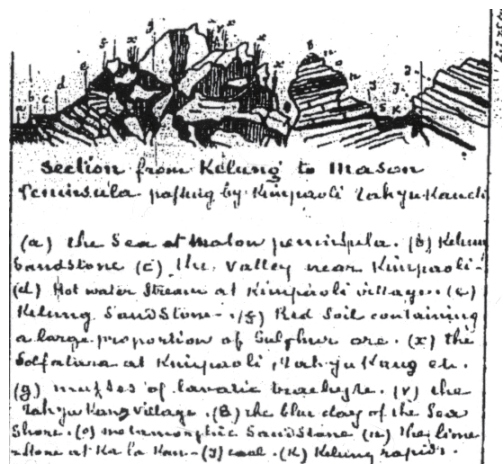 Section from Kelung to Mason
Peninsula passing by Kimpaoli Takyu Kand
(a) the Sea at Matou peninsula. (b) Kelung
Sandstone (c) the Valley near Kimpaoli-
(d) Hot water Stream at Kimpaoli village. (e)
Kelung SandStone-. (f) Red Soil containing
a large proportion of Sulphur ore. (x) the
Solfatara at Kimpaoli, Takyu Kang etc.
(g) masses of lavatic trachyte. (v) the
Takyu Kang Village. (B) the blue clay of the Sea
Shore. (o) metamorphic SandStone (n) the lime
-stone at Ka La Kan- (J) coal. (K) Kelung rapids.